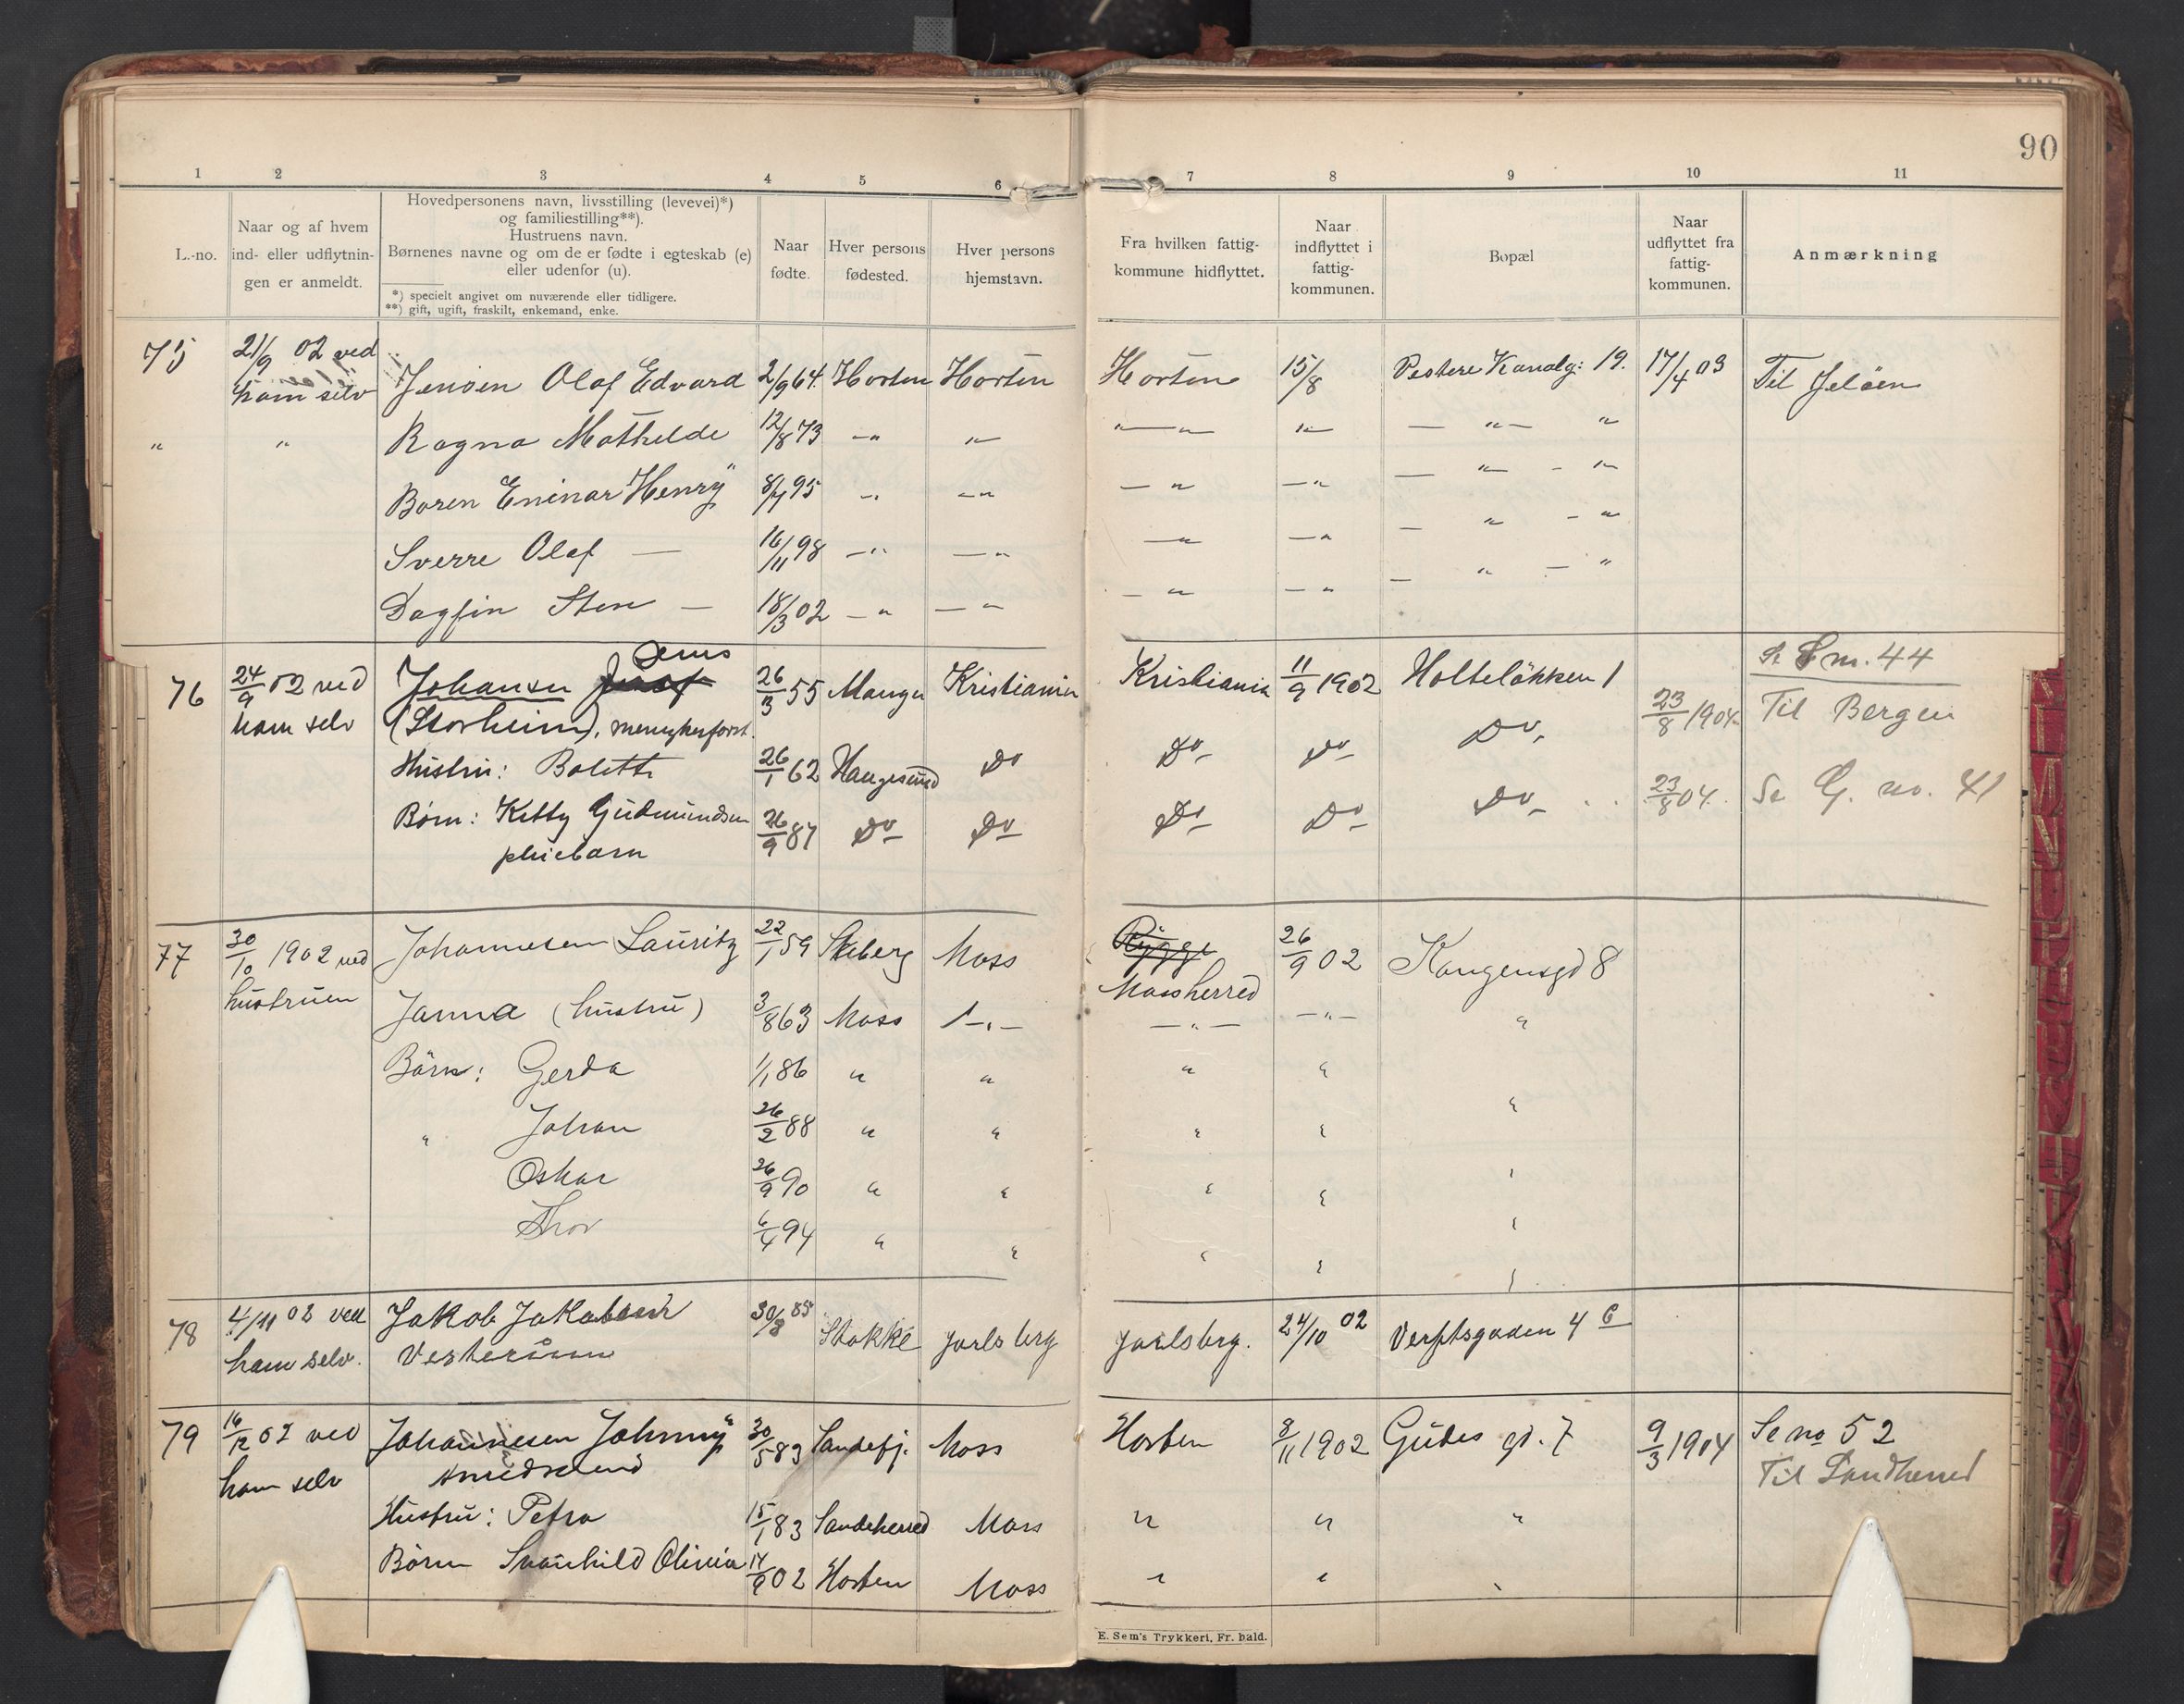 90
1 2 3 4 5 6 7 8 9 10 11
L.-no.
Naar og af hvem
ind- eller udflytnin-
gen er anmeldt.
Hovedpersonens navn, livsstilling (levevei)*)
og familiestilling**).
Hustruens navn.
Børnenes navne og om de er fødte i egteskab (e)
eller udenfor (u).
*) specielt angivet om nuværende eller tidligere.
**) gift, ugift, fraskilt, enkemand, enke.
Naar
fødte.
Hver persons
fødested.
Hver persons
hjemstavn.
Fra hvilken fattig-
kommune hidflyttet.
Naar
indflyttet i
fattig-
kommunen.
Bopæl
Naar
udflyttet fra
fattig-
kommunen.
Anmærkning
75 21/9 02 ved Jensen Olaf Edvard 2/9 64. Horten Horten Horten 15/8 Vestere Kanalg: 19. 17/4 03 Til Jelöen
ham selv
" " Ragna Mathelde 12/8 73 -"- -"- -"- -"- - "- "
Boren Eninar Henrÿ 8/4 95 -"- -"- -"- -"- - "- - "
Sverre Olaf — 16/11 98 -"- -"- -"- -"- - " - "
Dagfin Sten — 18/3 02 -"- -"- -"- -"- - " - "
76 24/9 02 ved Johansen Jens 26/3 55 Manger Kristiania Kristiania 11/9 1902 Holteløkken 1 Se S no. 44
ham selv (Storheim), menighedsforst. 23/8 1904 Til Bergen
Hustru: Bolette 26/1 62 Haugesund Do Do Do Do
Børn: Ketty Gudmundsen 26/9 87 Do Do Do Do Do 23/8 04. Se G. no. 41
pleiebarn
77 30/10 1902 ved Johannesen Lauritz 22/1 59 Skeberg Moss Rygge 26/9 02 Kongensgd 8
hustruen Mossherred
Janna (hustru) 3/8 63 Moss -"- -"- -"- "
Börn: Gerda 1/1 86 " " " " "
" Johan 26/2 88 " " " " "
Oskar 26/9 90 " " " " "
Thor 6/4 94 " " " " "
78 4/11 02 ved Jakob Jakobsen 30/8 85 Stokke Jarlsberg Jarlsberg. 24/10 02 Verftsgaden 4 c
ham selv. Vesterimm
79 16/12 02 ved Johannesen Johnnÿ 30/5 83 Sandefj. Moss Horten 8/11 1902 Gudes gd. 7 9/3 1904 Se no 52
ham selv smedsvend Til Sandherred
Hustru: Petra 15/1 83 Sandeherred Moss " " "
Börn Svanhild Olivia 14/9 02 Horten Moss " " "
E. Sem's Trykkeri, Fr. hald.